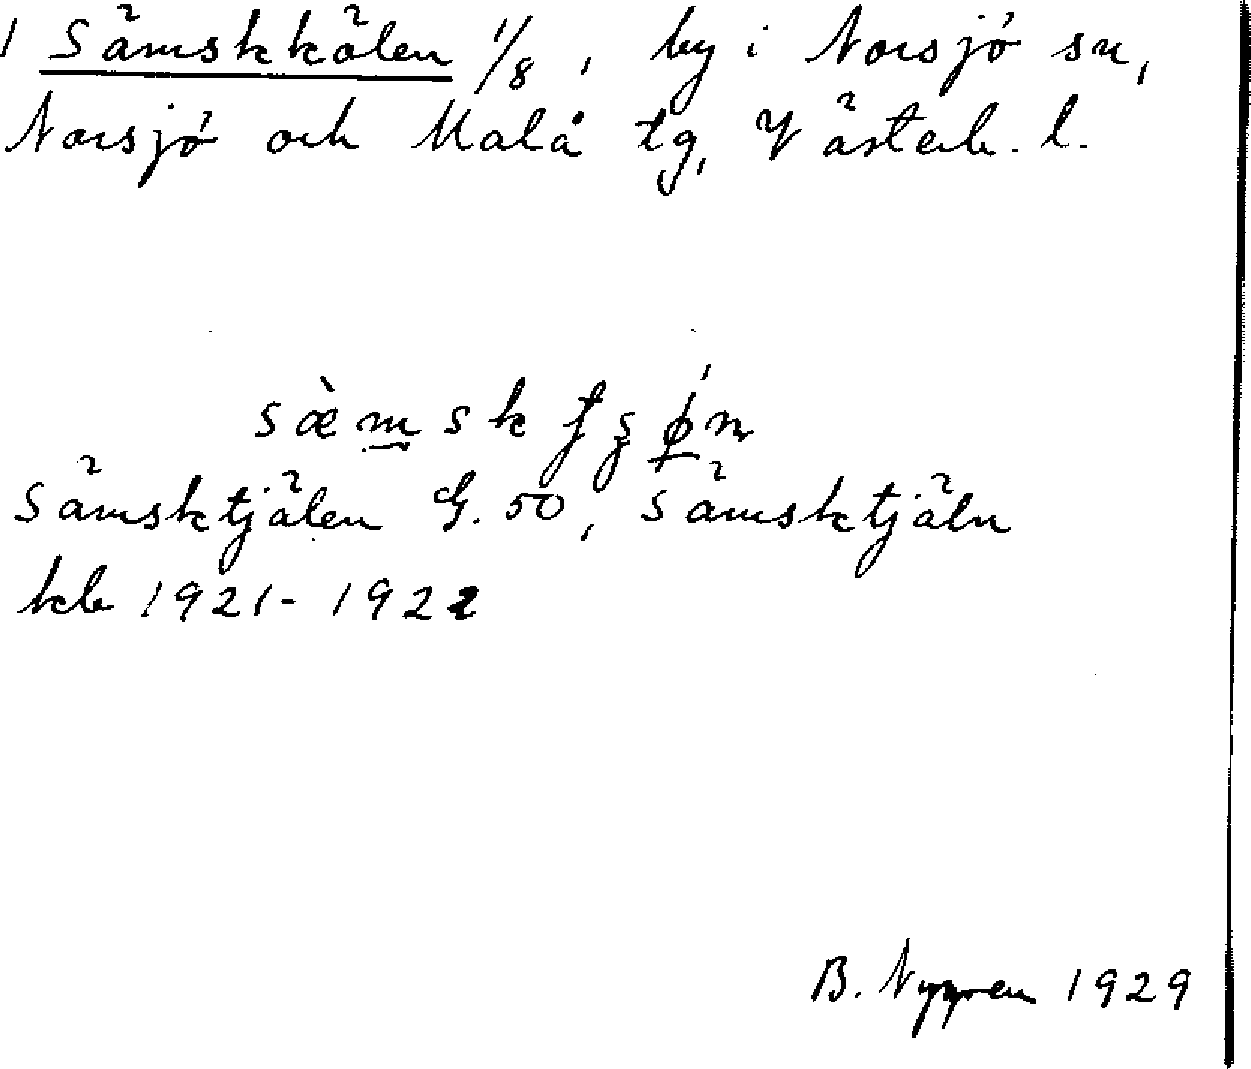 1 Sämskkålen 1/8, by i Norsjö sn,
Norsjö och Malå tg, Västerb. l.
Sämsktjälen G. 50, Sämsktjäln
kb 1921-1922
B. Nygren 1929